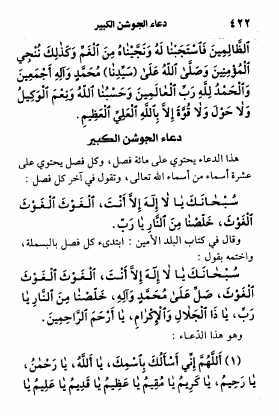 ٤٢٢ دعاء الجوشن الكبير
ٱلظَّالِمِينَ فَٱسْتَجَبْنَا لَهُ وَنَجَّيْنَاهُ مِنَ ٱلْغَمِّ وَكَذٰلِكَ نُنْجِي
ٱلْمُؤْمِنِينَ وَصَلَّىٰ ٱللَّهُ عَلَىٰ (سَيِّدِنَا) مُحَمَّدٍ وَآلِهِ أَجْمَعِينَ
وَٱلْحَمْدُ لِلَّهِ رَبِّ ٱلْعَالَمِينَ وَحَسْبُنَا ٱللَّهُ وَنِعْمَ ٱلْوَكِيلُ
وَلَا حَوْلَ وَلَا قُوَّةَ إِلَّا بِٱللَّهِ ٱلْعَلِيِّ ٱلْعَظِيمِ.
دعاء الجوشن الكبير
هذا الدعاء يحتوي على مائة فصل، وكل فصل يحتوي على
عشرة أسماء من أسماء الله تعالى، وتقول في آخر كل فصل:
سُبْحَانَكَ يَا لَا إِلٰهَ إِلَّا أَنْتَ، ٱلْغَوْثَ ٱلْغَوْثَ
ٱلْغَوْثَ، خَلِّصْنَا مِنَ ٱلنَّارِ يَا رَبِّ.
وقال في كتاب البلد الأمين: ابتدىء كل فصل بالبسملة،
واختمه بقول:
سُبْحَانَكَ يَا لَا إِلٰهَ إِلَّا أَنْتَ، ٱلْغَوْثَ ٱلْغَوْثَ
ٱلْغَوْثَ، صَلِّ عَلَىٰ مُحَمَّدٍ وَآلِهِ، خَلِّصْنَا مِنَ ٱلنَّارِ يَا
رَبِّ، يَا ذَا ٱلْجَلَالِ وَٱلْإِكْرَامِ، يَا أَرْحَمَ ٱلرَّاحِمِينَ.
وهو هذا الدّعاء:
(١) ٱللَّهُمَّ إِنِّي أَسْأَلُكَ بِٱسْمِكَ، يَا ٱللَّهُ، يَا رَحْمٰنُ،
يَا رَحِيمُ، يَا كَرِيمُ يَا مُقِيمُ يَا عَظِيمُ يَا قَدِيمُ يَا عَلِيمُ يَا